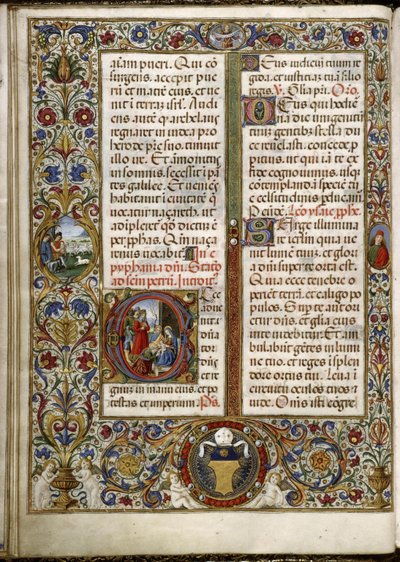 aīam pueri. Qui cō
surgens, accepit pue
rū et matrē eius, et ue
nit ī terrā isrl'. Audi
ens autē q archelaus
regnaret in iudea pro
herode prē suo, timuit
illo ire. Et āmonitus
in somnis, secessit ī pa
tes galilee. Et ueniēs
habitauit ī ciuitate q̄
uocatur nazareth. ut
adīpleret' qd' dictū ē
per pphās. Qm̄ naza
renus uocabit'. In e
pyphania dn̄i. Statō
ad scm̄ petrū. Introit'.
Ecce
adue
nit
dn̄a
tor
dn̄s:
et re
gnū in manu eius, et po
testas et imperium. Ps.
Deus iudiciū tuum re
gi da, et iustitiā tuā filio
regis. V. Glia pri. Orō.
Deus qui hodier
na die unigenitū
tuū gentibus stella du
ce reuelasti: concede p
pitius, ut qui iā te ex fi
de cognouimus, usq ad
cōtemplandā speciē tue
celsitudinis pducam'.
P eūdē. Lcō ysaie pphe.
Surge illumina
re ierlm̄ quia ue
nit lumen tuum, et glori
a dn̄i super te orta est.
Quia ecce tenebre o
perient terrā. et caligo po
pulos. Sup te aut ori
etur dn̄s, et glia eius
in te uidebitur. Et am
bulabūt gētes in lumi
ne tuo, et reges ī splen
dore ortus tui. Leua ī
circuitu oculos tuos et
uide. Om̄s isti cōgre